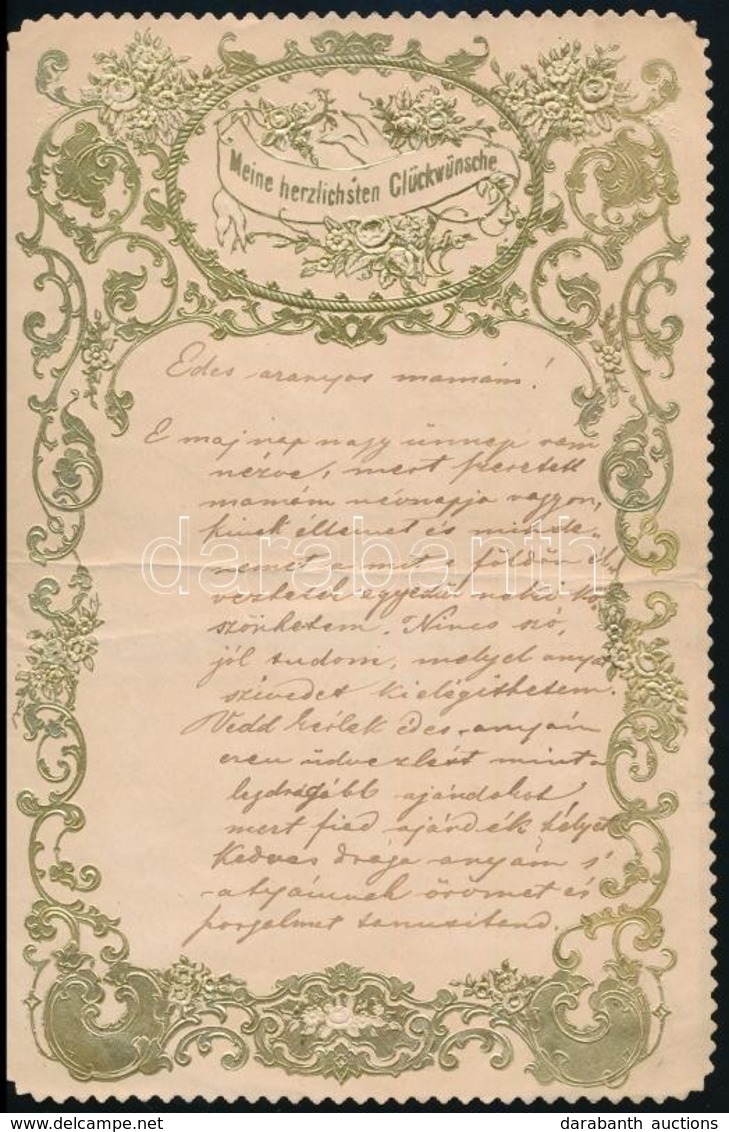 Meine herzlichsten Glückwünsche
Edes aranyos mamám!
E maj nap nagy ünnep rám
nézve, mert szeretett
mamám névnapja vagyon,
kinek éltemet és minde-
nemet a mit e földön él
egyedül neki kö
szönhetem. Nincs szó,
jól tudom, melyel anyai
szivedet kielégithetem.
Vedd kérlek édes anyám
ezen üdvezlést mint a
legdrágább ajándokot
mert fiad ajándék
Kedves drága anyám s
atyámnak örömet és
tanusitand.
darabanth
darabanth auctions
www.delcampe.net